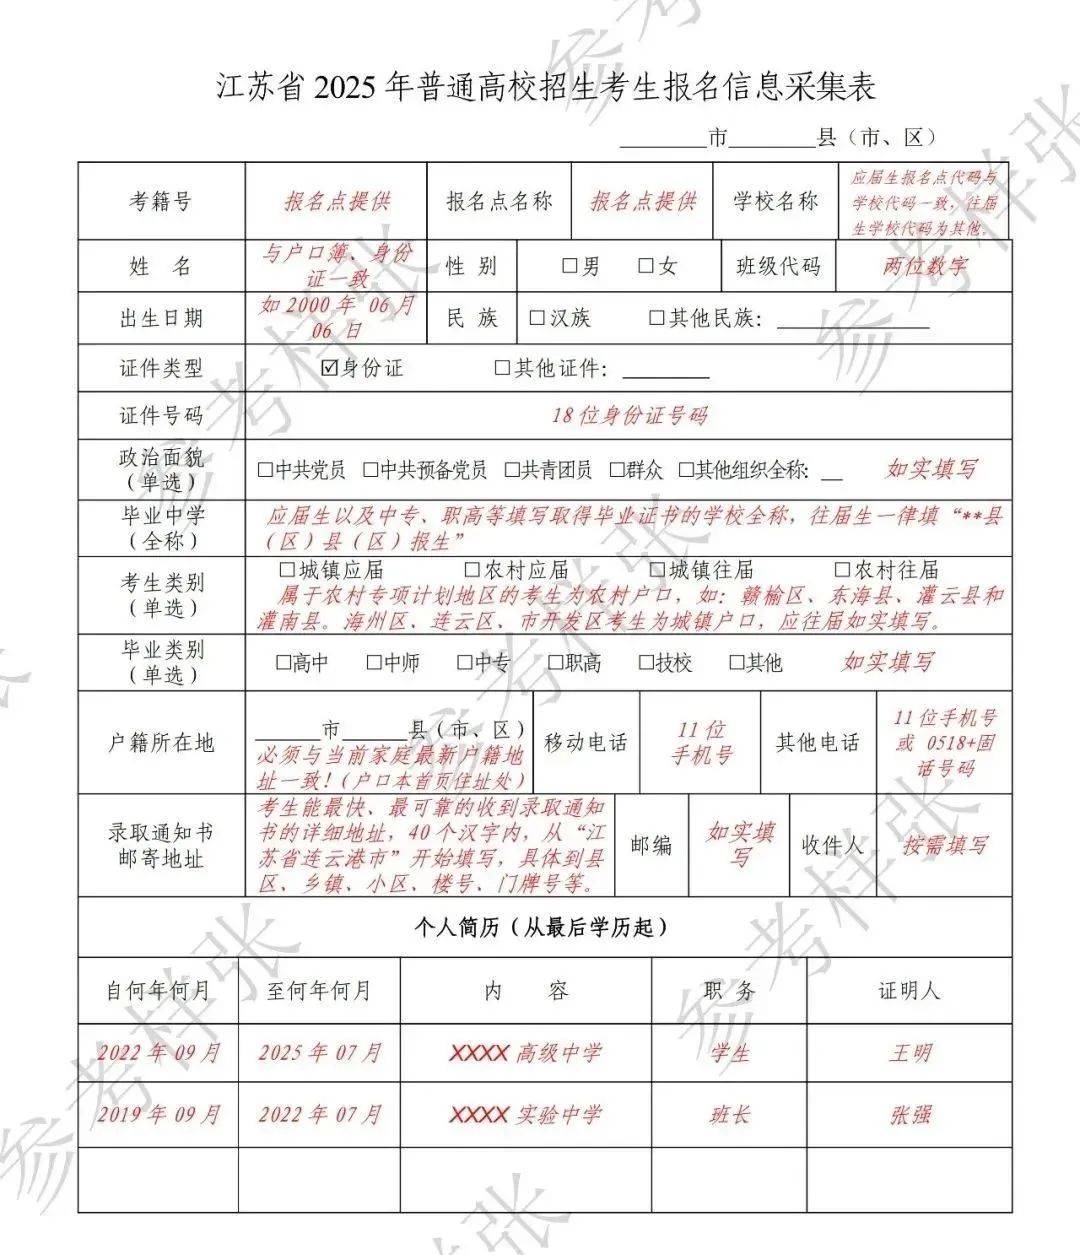 江苏省 2025 年普通高校招生考生报名信息采集表
________市________县（市、区）
考籍号 报名点提供 报名点名称 报名点提供 学校名称 应届生报名点代码与
学校代码一致，往届
生学校代码为其他。
姓 名 与户口簿、身份
证一致 性 别 □男 □女 班级代码 两位数字
出生日期 如 2000 年 06 月
06 日 民 族 □汉族 □其他民族：______________
证件类型 ☑身份证 □其他证件：________
证件号码 18 位身份证号码
政治面貌
（单选） □中共党员 □中共预备党员 □共青团员 □群众 □其他组织全称：__ 如实填写
毕业中学
（全称） 应届生以及中专、职高等填写取得毕业证书的学校全称，往届生一律填“**县
（区）县（区）报生”
考生类别
（单选） □城镇应届 □农村应届 □城镇往届 □农村往届
属于农村专项计划地区的考生为农村户口，如：赣榆区、东海县、灌云县和
灌南县。海州区、连云区、市开发区考生为城镇户口，应往届如实填写。
毕业类别
（单选） □高中 □中师 □中专 □职高 □技校 □其他 如实填写
户籍所在地 ______市______县（市、区）
必须与当前家庭最新户籍地
址一致！（户口本首页住址处） 移动电话 11 位
手机号 其他电话 11 位手机号
或 0518+固
话号码
录取通知书
邮寄地址 考生能最快、最可靠的收到录取通知
书的详细地址，40 个汉字内，从“江
苏省连云港市”开始填写，具体到县
区、乡镇、小区、楼号、门牌号等。 邮编 如实填
写 收件人 按需填写
个人简历（从最后学历起）
自何年何月 至何年何月 内 容 职 务 证明人
2022 年 09 月 2025 年 07 月 XXXX 高级中学 学生 王明
2019 年 09 月 2022 年 07 月 XXXX 实验中学 班长 张强
参考样张
参考样张
参考样张
参考样张
参考样张
参考样张